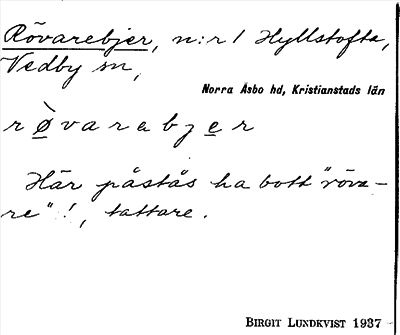 Rövarebjer, n:r 1 Hyllstofta,
Vedby sn,
Norra Åsbo hd, Kristianstads län
r ø̀ v a r e b j e r
Här påstås ha bott "röva-
re"!, tattare.
BIRGIT LUNDKVIST 1937